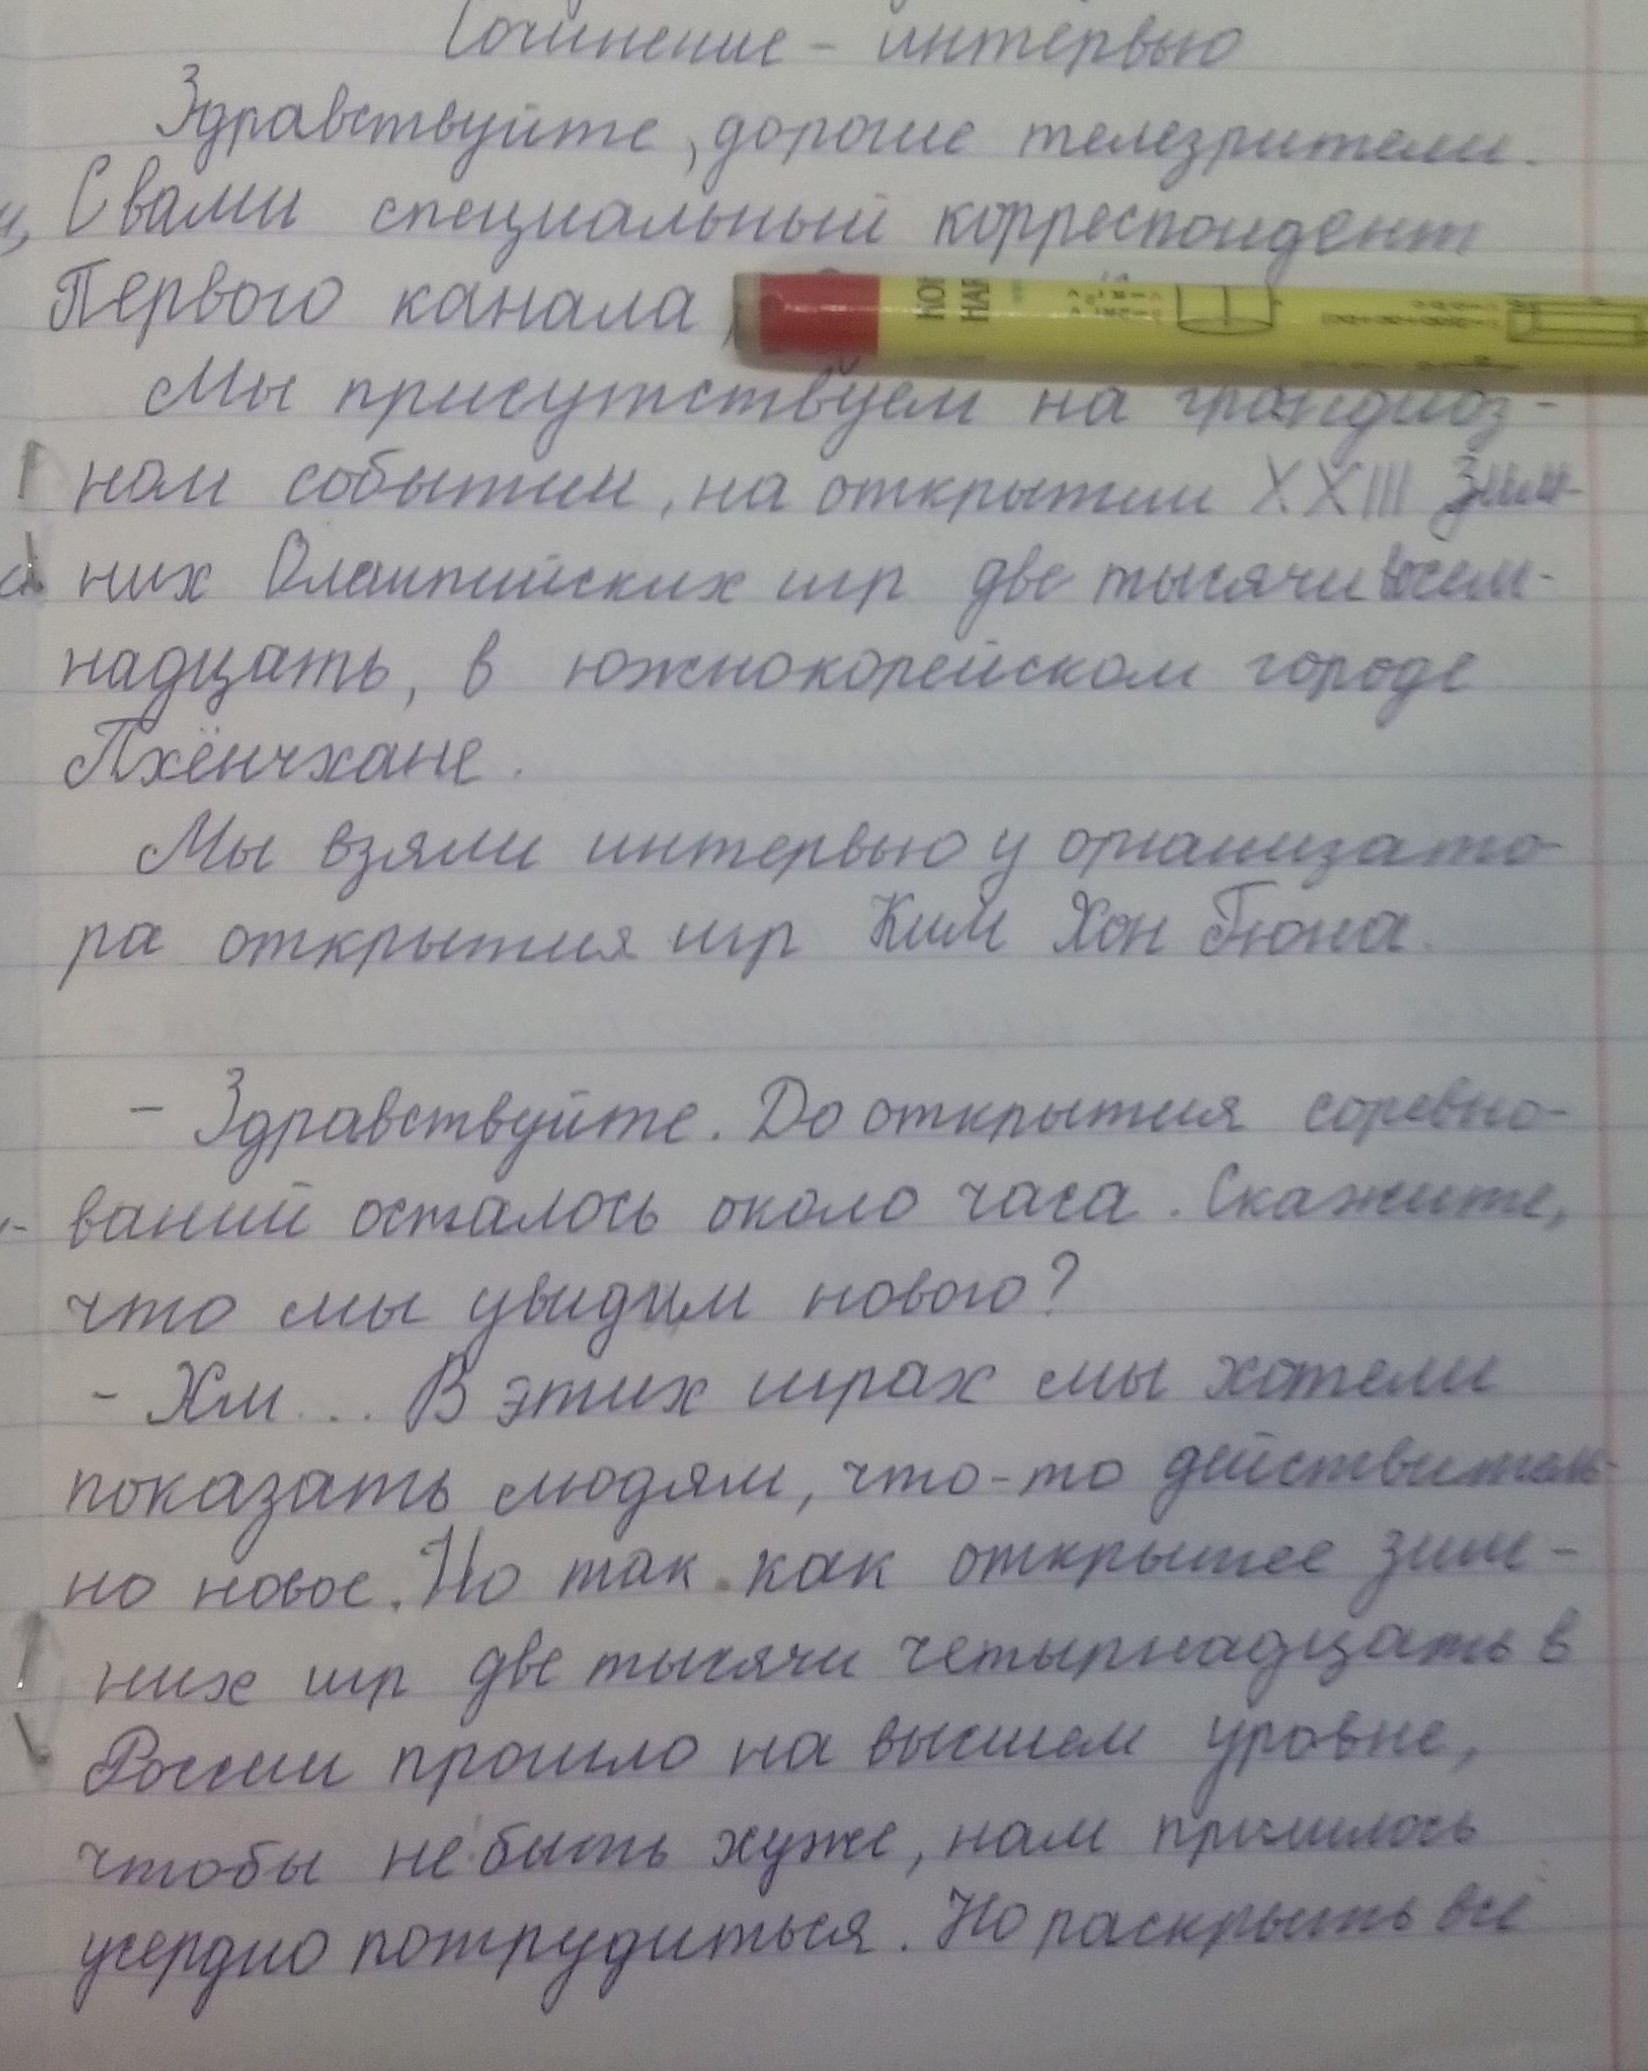 Сочинение - интервью
Здравствуйте, дорогие телезрители.
С вами специальный корреспондент
Первого канала,
Мы присутствуем на грандиоз-
ном событии, на открытии XXIII Зим-
них Олимпийских игр две тысячи восем-
надцать, в южнокорейском городе
Пхёнчхане.
Мы взяли интервью у организато-
ра открытия игр Ким Хон Гюна.
- Здравствуйте. До открытия соревно-
ваний осталось около часа. Скажите,
что мы увидим нового?
- Хм... В этих играх мы хотели
показать людям, что-то действитель-
но новое. Но так как открытее зим-
них игр две тысячи четырнадцать в
России прошло на высшем уровне,
чтобы не быть хуже, нам пришлось
усердно потрудиться. Но раскрыть всё